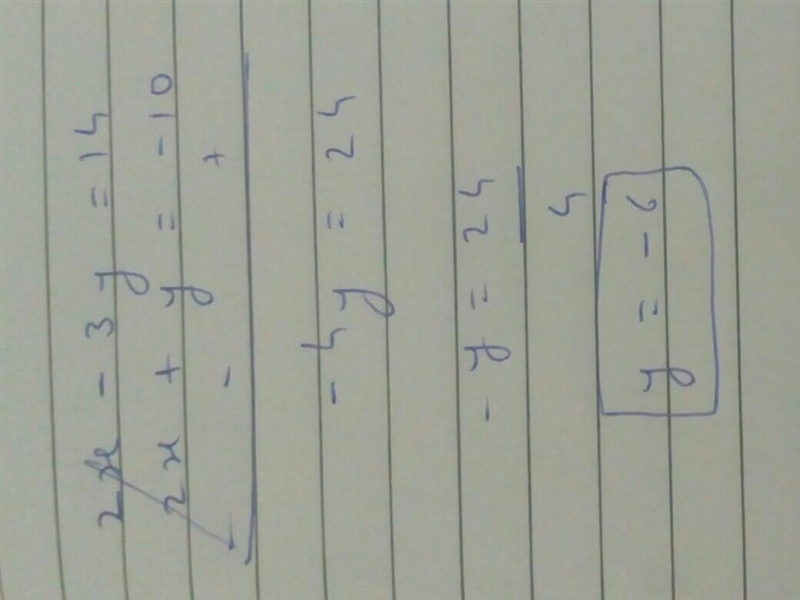 2x - 3y = 14
2x + y = -10
- - +
-4y = 24
-y = 24
4
y = -6